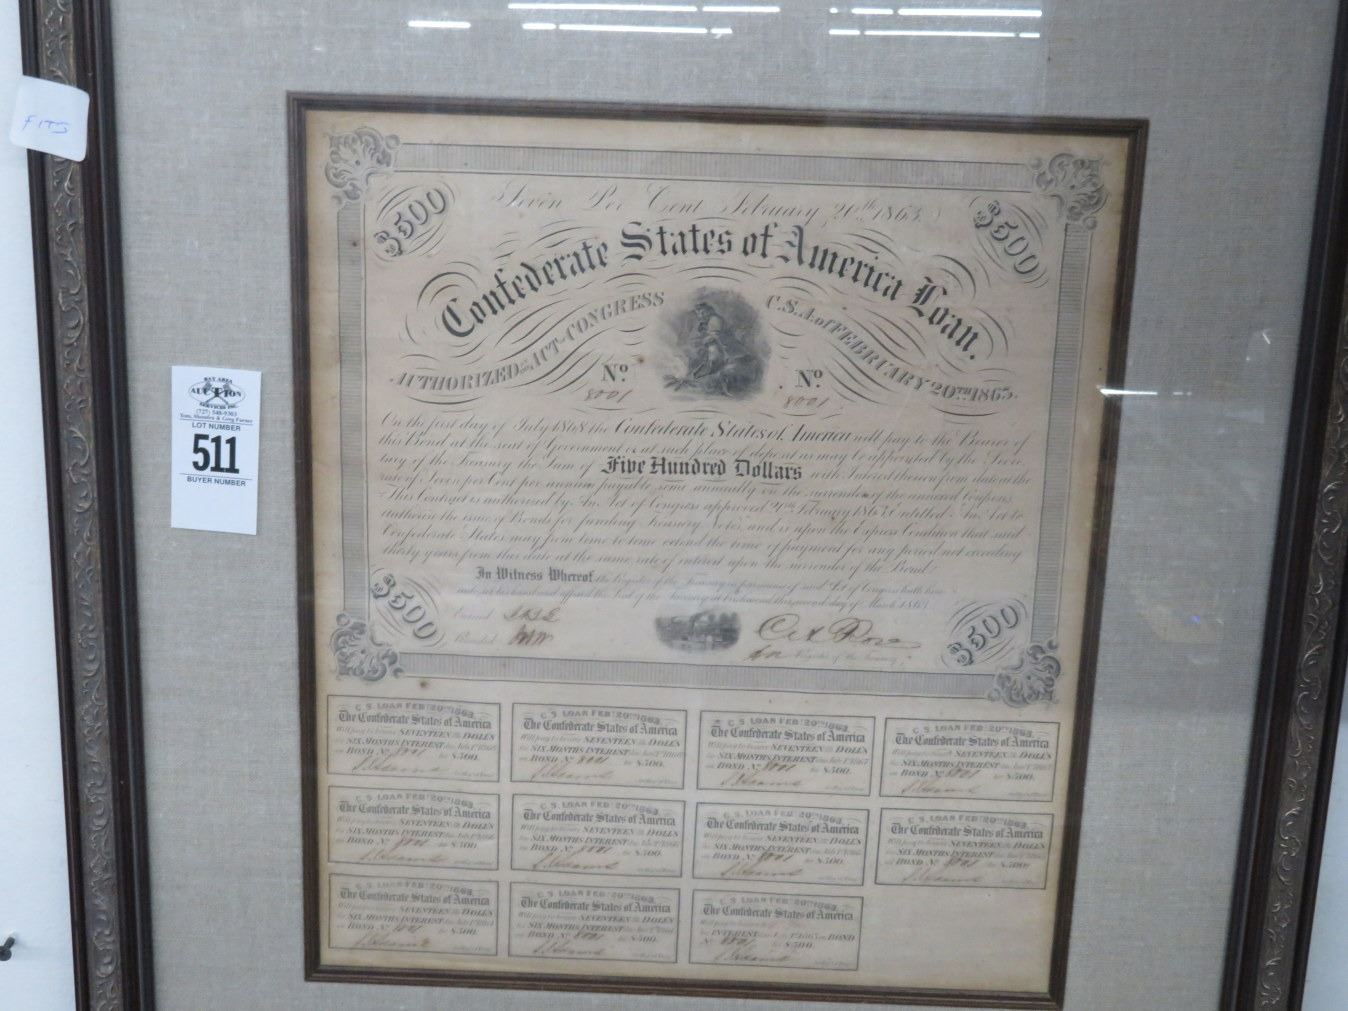 FITS
BAY AREA
AUCTION
SERVICES INC.
(727) 548-9303
LOT NUMBER
511
BUYER NUMBER
Seven Per Cent February 20th 1863
$500
$500
Confederate States of America Loan.
AUTHORIZED BY ACT OF CONGRESS
C.S.A. of FEBRUARY 20TH 1863.
No. No.
8001 8001
On the first day of July 1868 the Confederate States of America will pay to the Bearer of
this Bond at the seat of Government or at such place of deposit as may be appointed by the Secre-
tary of the Treasury the Sum of Five Hundred Dollars with Interest thereon from date at the
rate of Seven per Cent per annum payable semi annually on the surrender of the annexed Coupons.
This Contract is authorized by An Act of Congress approved 20th February 1863 Entitled An Act to
authorize the issue of Bonds for funding Treasury Notes and is upon the Express Condition that said
Confederate States may from time to time extend the time of payment for any period not exceeding
thirty years from this date at the same rate of interest upon the surrender of the Bond.
In Witness Whereof the Register of the Treasury in pursuance of said Act of Congress hath here-
unto set his hand and affixed the Seal of the Treasury at Richmond this second day of March 1863
Entered
Recorded
Register of the Treasury
$500
$500
C. S. LOAN FEB 20TH 1863.
The Confederate States of America
Will pay to bearer SEVENTEEN DOLLS
SIX MONTHS INTEREST
on BOND No. 8001 for $500.
C. S. LOAN FEB 20TH 1863.
The Confederate States of America
Will pay to bearer SEVENTEEN DOLLS
SIX MONTHS INTEREST
on BOND No. 8001 for $500.
C. S. LOAN FEB 20TH 1863.
The Confederate States of America
Will pay to bearer SEVENTEEN DOLLS
SIX MONTHS INTEREST
on BOND No. 8001 for $500.
C. S. LOAN FEB 20TH 1863.
The Confederate States of America
Will pay to bearer SEVENTEEN DOLLS
SIX MONTHS INTEREST
on BOND No. 8001 for $500.
C. S. LOAN FEB 20TH 1863.
The Confederate States of America
Will pay to bearer SEVENTEEN DOLLS
SIX MONTHS INTEREST
on BOND No. 8001 for $500.
C. S. LOAN FEB 20TH 1863.
The Confederate States of America
Will pay to bearer SEVENTEEN DOLLS
SIX MONTHS INTEREST
on BOND No. 8001 for $500.
C. S. LOAN FEB 20TH 1863.
The Confederate States of America
Will pay to bearer SEVENTEEN DOLLS
SIX MONTHS INTEREST
on BOND No. 8001 for $500.
C. S. LOAN FEB 20TH 1863.
The Confederate States of America
Will pay to bearer SEVENTEEN DOLLS
SIX MONTHS INTEREST
on BOND No. 8001 for $500.
C. S. LOAN FEB 20TH 1863.
The Confederate States of America
Will pay to bearer SEVENTEEN DOLLS
SIX MONTHS INTEREST
on BOND No. 8001 for $500.
C. S. LOAN FEB 20TH 1863.
The Confederate States of America
Will pay to bearer SEVENTEEN DOLLS
SIX MONTHS INTEREST
on BOND No. 8001 for $500.
C. S. LOAN FEB 20TH 1863.
The Confederate States of America
INTEREST on BOND
No. 8001 for $500.